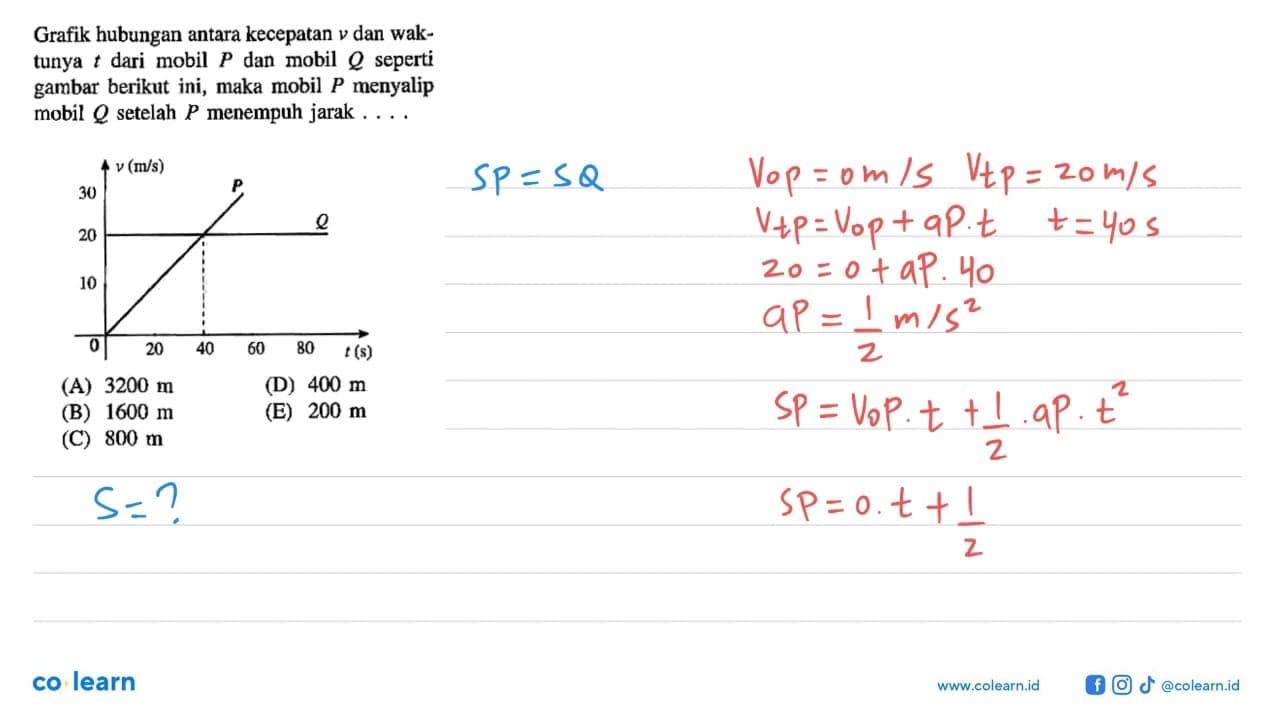 Grafik hubungan antara kecepatan v dan wak-
tunya t dari mobil P dan mobil Q seperti
gambar berikut ini, maka mobil P menyalip
mobil Q setelah P menempuh jarak . . . .
v (m/s)
30
20
10
P
Q
0 20 40 60 80 t (s)
(A) 3200 m (D) 400 m
(B) 1600 m (E) 200 m
(C) 800 m
S = ?
SP = SQ
Vop = 0 m/s Vtp = 20 m/s
Vtp = Vop + aP.t t = 40 s
20 = 0 + aP. 40
aP = 1/2 m/s²
SP = VoP. t + 1/2 . aP. t²
SP = 0. t + 1/2
co learn
www.colearn.id @colearn.id